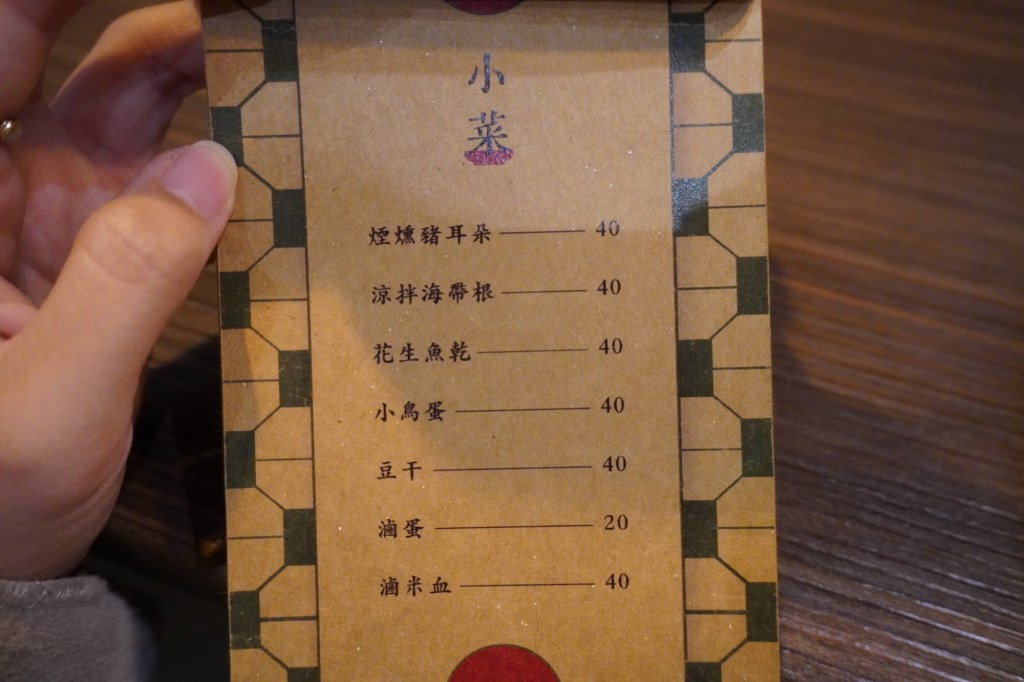 小菜
煙燻豬耳朵 40
涼拌海帶根 40
花生魚乾 40
小鳥蛋 40
豆干 40
滷蛋 20
滷米血 40